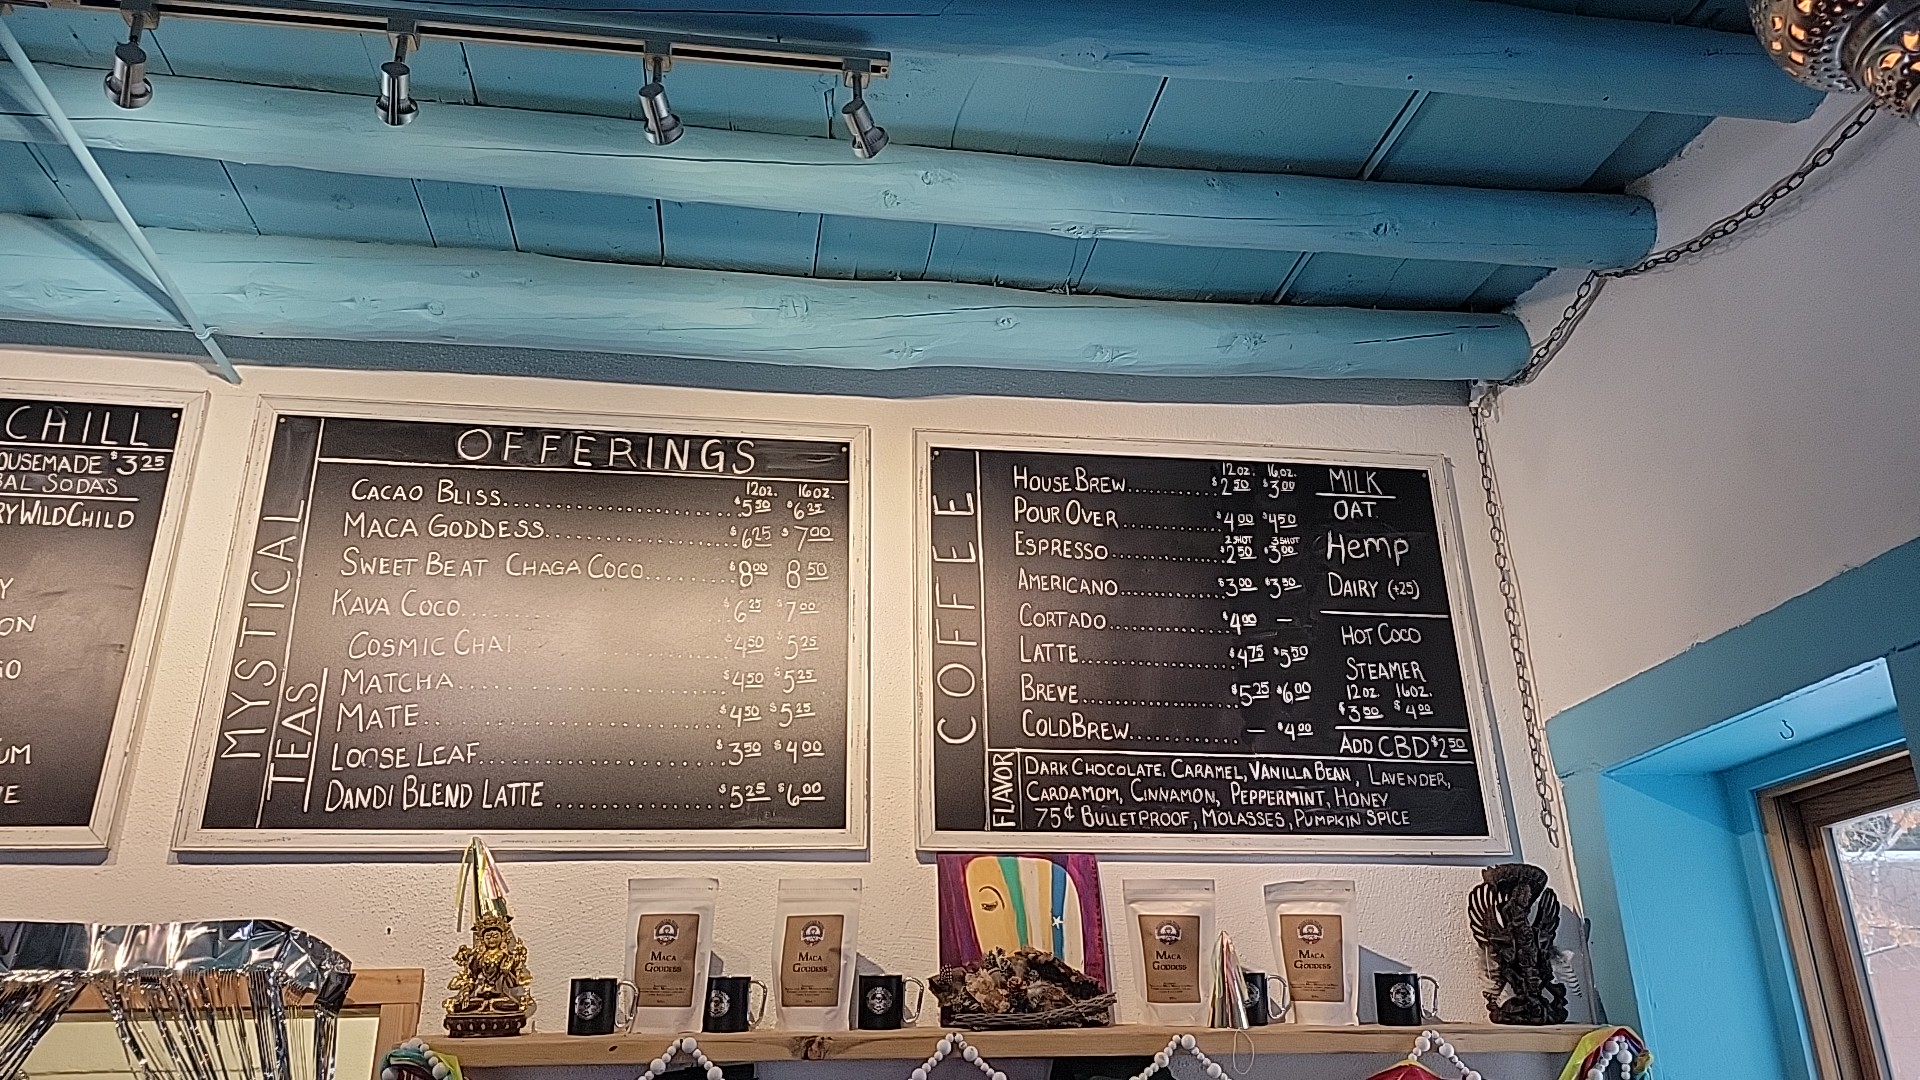 CHILL
OUSEMADE $3.25
BAL SODAS
RY WILD CHILD
Y
ON
GO
UM
E
MYSTICAL
TEAS
OFFERINGS
12oz. 16oz.
CACAO BLISS $5.50 $6.25
MACA GODDESS $6.25 $7.00
SWEET BEAT CHAGA COCO $8.00 8.50
KAVA COCO $6.25 $7.00
COSMIC CHAI $4.50 $5.25
MATCHA $4.50 $5.25
MATE $4.50 $5.25
LOOSE LEAF $3.50 $4.00
DANDI BLEND LATTE $5.25 $6.00
COFFEE
12oz. 16oz.
HOUSE BREW $2.50 $3.00
POUR OVER $4.00 $4.50
2 SHOT 3 SHOT
ESPRESSO $2.50 $3.00
AMERICANO $3.00 $3.50
CORTADO $4.00 —
LATTE $4.75 $5.50
BREVE $5.25 $6.00
COLD BREW — $4.00
MILK
OAT
Hemp
DAIRY (+.25)
HOT COCO
STEAMER
12oz. 16oz.
$3.50 $4.00
ADD CBD $2.50
FLAVOR
DARK CHOCOLATE, CARAMEL, VANILLA BEAN, LAVENDER,
CARDAMOM, CINNAMON, PEPPERMINT, HONEY
75¢ BULLETPROOF, MOLASSES, PUMPKIN SPICE
MACA
GODDESS
MACA
GODDESS
MACA
GODDESS
MACA
GODDESS